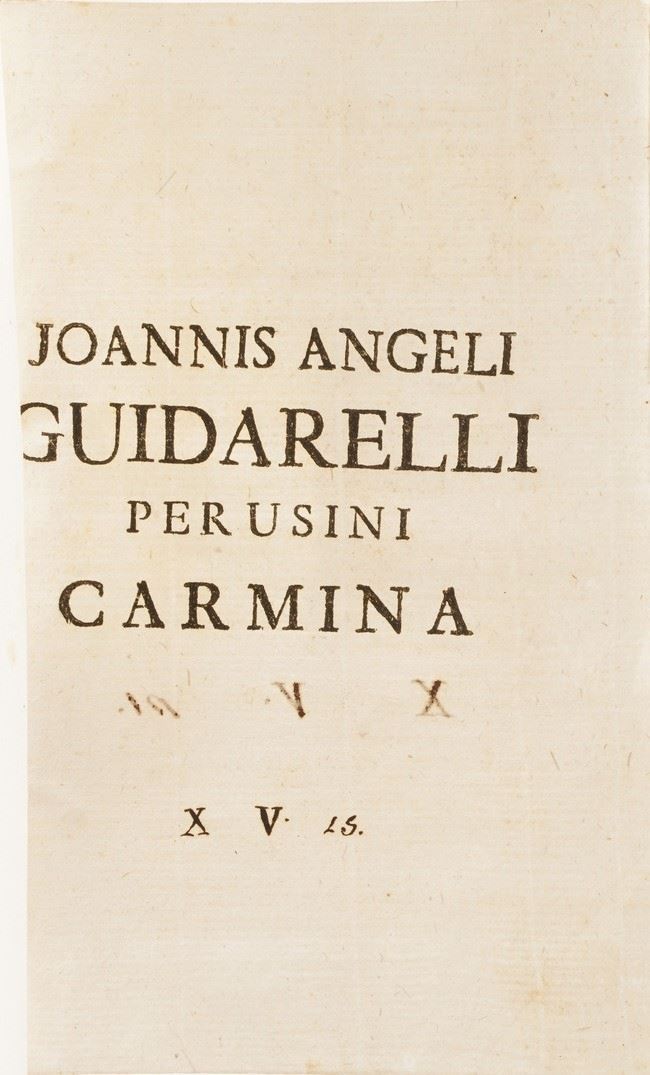 JOANNIS ANGELI
GUIDARELLI
PERUSINI
CARMINA
X V. 15.